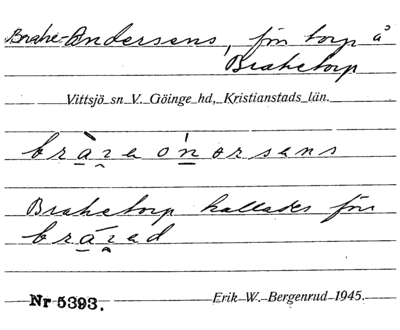 Brahe-Andersens, för torp å
Brahetorp
Vittsjö sn V. Göinge hd, Kristianstads län.
bràʐeònorsens
Brahetorp kallades för
bráʐad
Nr 5393.
Erik W. Bergenrud 1945.